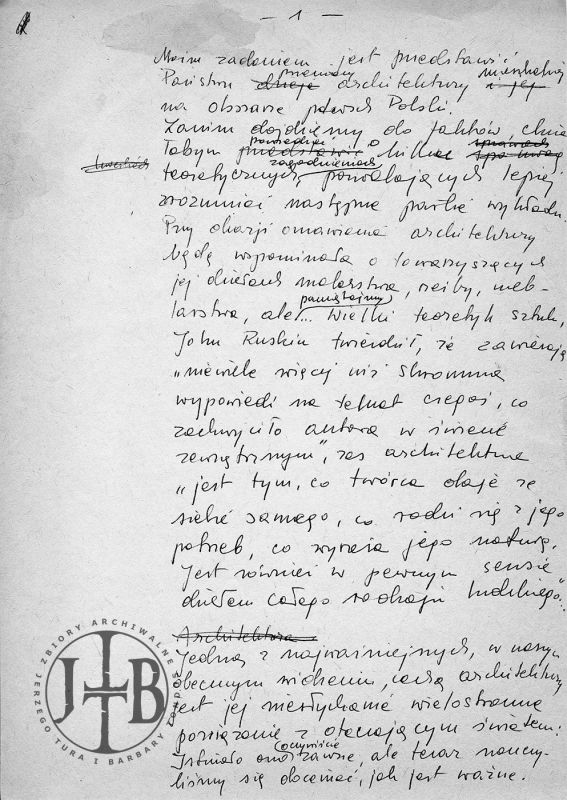 — 1 —
Moim zadaniem jest przedstawić
przemiany mieszkalnej
Państwu dzieje architektury i jej
na obszarze Polski.
Zanim dojdziemy do faktów, chcia-
powiedzieć o sprawach
łabym przedstawić kilka
zagadnieniach
teoretycznych, pozwalających lepiej
zrozumieć następne partie wykładu.
Przy okazji omawiania architektury
będę wspominała o towarzyszących
jej dziełach malarstwa, rzeźby, meb-
pamiętajmy
larstwa, ale... wielki teoretyk sztuki,
John Ruskin twierdził, że zawierają
„niewiele więcej niż skromne
wypowiedzi na temat czegoś, co
zachwyciło autora w świecie
zewnętrznym", zaś architektura
„jest tym, co twórca daje ze
siebie samego, co rodzi się z jego
potrzeb, co wyraża jego naturę.
Jest również w pewnym sensie
dziełem całego rodzaju ludzkiego"...
Architektura
Jedną z najważniejszych, w naszym
obecnym widzeniu, cechą architektury
jest jej niesłychanie wielostronne
powiązanie z otaczającym światem.
oczywiście
Istniało ono zawsze, ale teraz nauczy-
liśmy się doceniać, jak jest ważne.
ZBIORY ARCHIWALNE
JERZEGO TURA I BARBARY
JTB